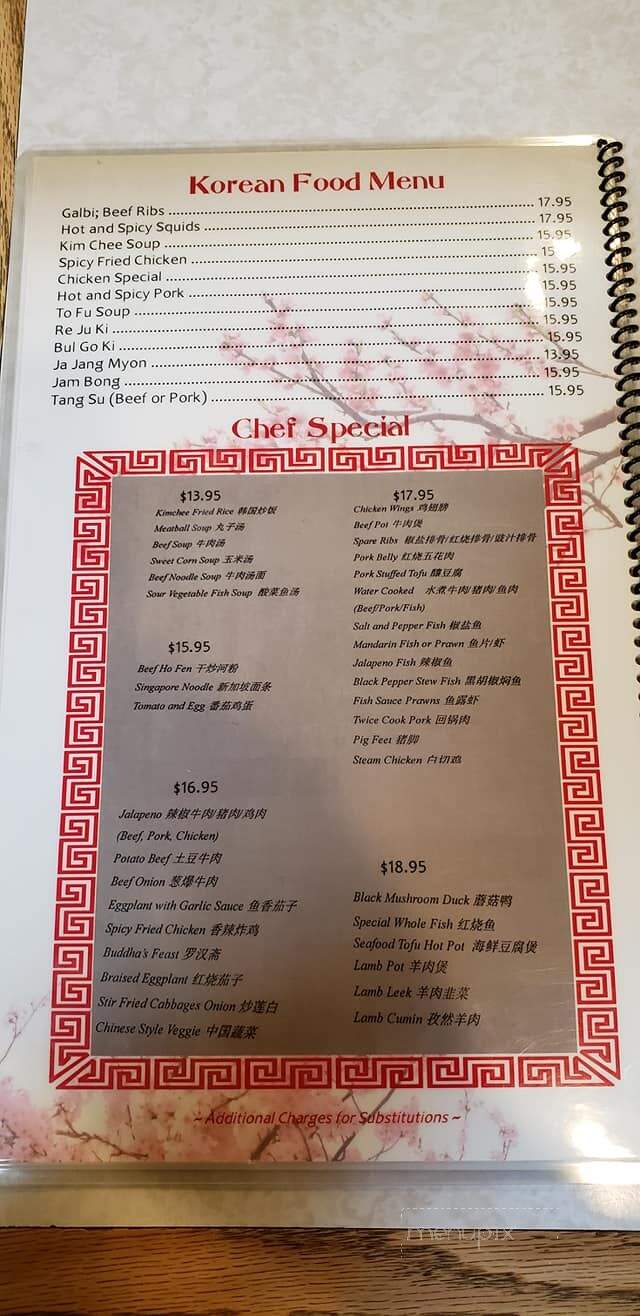 Korean Food Menu
Galbi; Beef Ribs 17.95
Hot and Spicy Squids 17.95
Kim Chee Soup 15.95
Spicy Fried Chicken 15
Chicken Special 15.95
Hot and Spicy Pork 15.95
To Fu Soup 15.95
Re Ju Ki 15.95
Bul Go Ki 15.95
Ja Jang Myon 13.95
Jam Bong 15.95
Tang Su (Beef or Pork) 15.95
Chef Special
$13.95
Kimchee Fried Rice 韩国炒饭
Meatball Soup 丸子汤
Beef Soup 牛肉汤
Sweet Corn Soup 玉米汤
Beef Noodle Soup 牛肉汤面
Sour Vegetable Fish Soup 酸菜鱼汤
$15.95
Beef Ho Fen 干炒河粉
Singapore Noodle 新加坡面条
Tomato and Egg 番茄鸡蛋
$16.95
Jalapeno 辣椒牛肉/猪肉/鸡肉
(Beef, Pork, Chicken)
Potato Beef 土豆牛肉
Beef Onion 葱爆牛肉
Eggplant with Garlic Sauce 鱼香茄子
Spicy Fried Chicken 香辣炸鸡
Buddha's Feast 罗汉斋
Braised Eggplant 红烧茄子
Stir Fried Cabbages Onion 炒莲白
Chinese Style Veggie 中国蔬菜
$17.95
Chicken Wings 鸡翅膀
Beef Pot 牛肉煲
Spare Ribs 椒盐排骨/红烧排骨/豉汁排骨
Pork Belly 红烧五花肉
Pork Stuffed Tofu 釀豆腐
Water Cooked 水煮牛肉/猪肉/鱼肉
(Beef/Pork/Fish)
Salt and Pepper Fish 椒盐鱼
Mandarin Fish or Prawn 鱼片/虾
Jalapeno Fish 辣椒鱼
Black Pepper Stew Fish 黑胡椒焖鱼
Fish Sauce Prawns 鱼露虾
Twice Cook Pork 回锅肉
Pig Feet 猪脚
Steam Chicken 白切鸡
$18.95
Black Mushroom Duck 蘑菇鸭
Special Whole Fish 红烧鱼
Seafood Tofu Hot Pot 海鲜豆腐煲
Lamb Pot 羊肉煲
Lamb Leek 羊肉韭菜
Lamb Cumin 孜然羊肉
~ Additional Charges for Substitutions ~
menupix